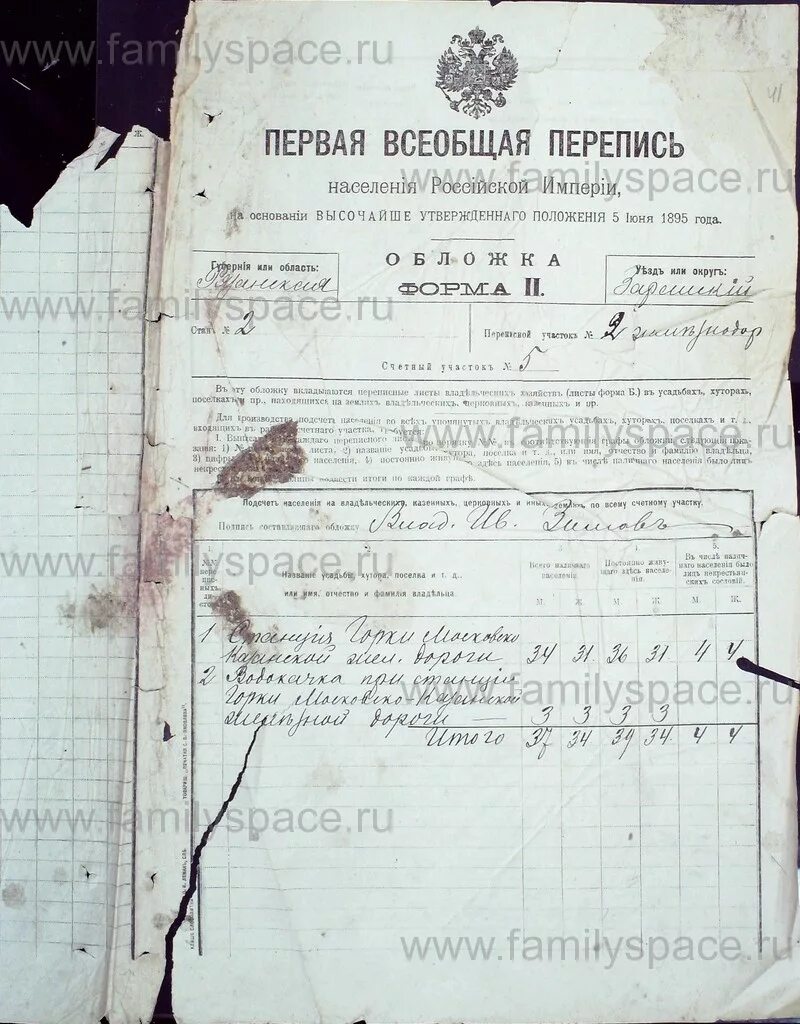 www.familyspace.ru
41
ПЕРВАЯ ВСЕОБЩАЯ ПЕРЕПИСЬ
www.familyspace.ru
населенія Россійской Имперіи,
на основаніи ВЫСОЧАЙШЕ УТВЕРЖДЕННАГО ПОЛОЖЕНІЯ 5 Іюня 1895 года.
ОБЛОЖКА
ФОРМА II.
Губернія или область:
Рязанская
Уѣздъ или округъ:
Зарайскій
www.familyspace.ru
Станъ № 2
Переписной участокъ № 2 желѣзнодор
Счетный участокъ № 5
Въ эту обложку вкладываются переписные листы владѣльческихъ хозяйствъ (листы форма Б.) въ усадьбахъ, хуторахъ,
поселкахъ и пр., находящихся на земляхъ владѣльческихъ, церковныхъ, казенныхъ и пр.
Для производства подсчет населенія во всѣхъ упомянутыхъ владѣльческихъ усадьбахъ, хуторахъ, поселкахъ и т. д.,
входящихъ въ счетнаго участка,
www.familyspace.ru
1. каждаго переписного графы обложки слѣдующія пока-
занія: 1) № листа, 2) названіе хутора, поселка и т. д., или имя, отчество и фамилію владѣльца,
3) цифры населенія, 4) постоянно здѣсь населенія, 5) въ числѣ наличнаго населенія было лицъ
некрест
итоги по каждой графѣ.
Подсчетъ населенія на владѣльческихъ, казенныхъ, церковныхъ и иныхъ земляхъ, по всему счетному участку.
Подпись составлявшаго обложку Влад. Ив. Зиловъ
www.familyspace.ru
Названіе усадьбы, хутора, поселка и т. д.,
или имя, отчество и фамилія владѣльца.
Всего наличнаго населенія.
Постоянно живущаго здѣсь населенія.
Въ числѣ наличнаго населенія было лицъ некрестьянскихъ сословій.
М. Ж. М. Ж. М. Ж.
1 Станція Горки Московско
Казанской жел. дороги 34 31 36 31 4 4
2 Водокачка при станціи
Горки Московско-Казанской
www.familyspace.ru
желѣзной дороги — 3 3 3 3
Итого 37 34 39 34 4 4
www.familyspace.ru
www.familyspace.ru